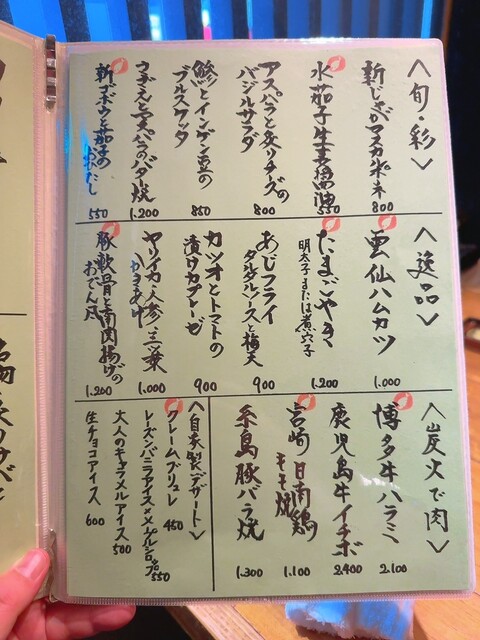 〈旬・彩〉
新じゃがマスカルポーネ
800
水茄子生姜醤油
550
アスパラと炙りチーズの
バジルサラダ
800
鯵とインゲン豆の
ブルスケッタ
850
1.200
新ゴボウと茄子の
おひたし
550
〈逸品〉
雲仙ハムカツ
1.000
たまごやき
明太子または煮穴子
1.200
あじフライ
タルタルソースと梅天
900
カツオとトマトの
漬けカプレーゼ
900
ヤリイカ・人参・三ツ葉
かきあげ
1.000
豚軟骨と南関揚げの
おでん風
1.200
〈炭火で肉〉
博多牛ハラミ
2.100
鹿児島牛イチボ
2.400
宮崎日南鶏
もも焼
1.100
糸島豚バラ焼
1.300
〈自家製デザート〉
クレームブリュレ
450
レーズンバニラアイス×メープルシロップ
550
大人のキャラメルアイス
500
生チョコアイス
600